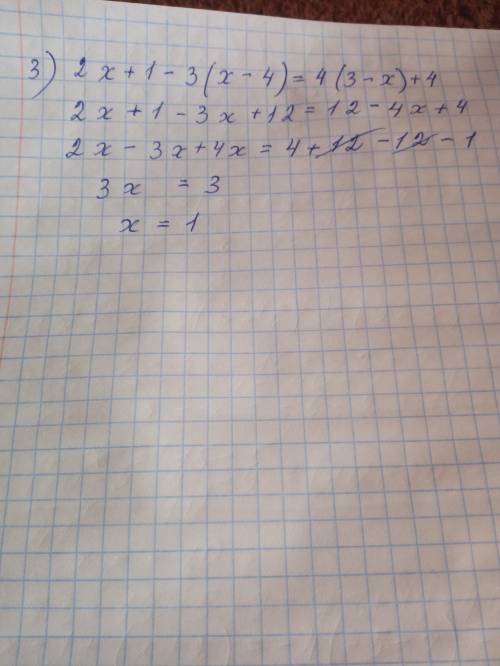 3) 2x+1-3(x-4)=4(3-x)+4
2x+1-3x+12=12-4x+4
2x-3x+4x=4+12-12-1
3x=3
x=1